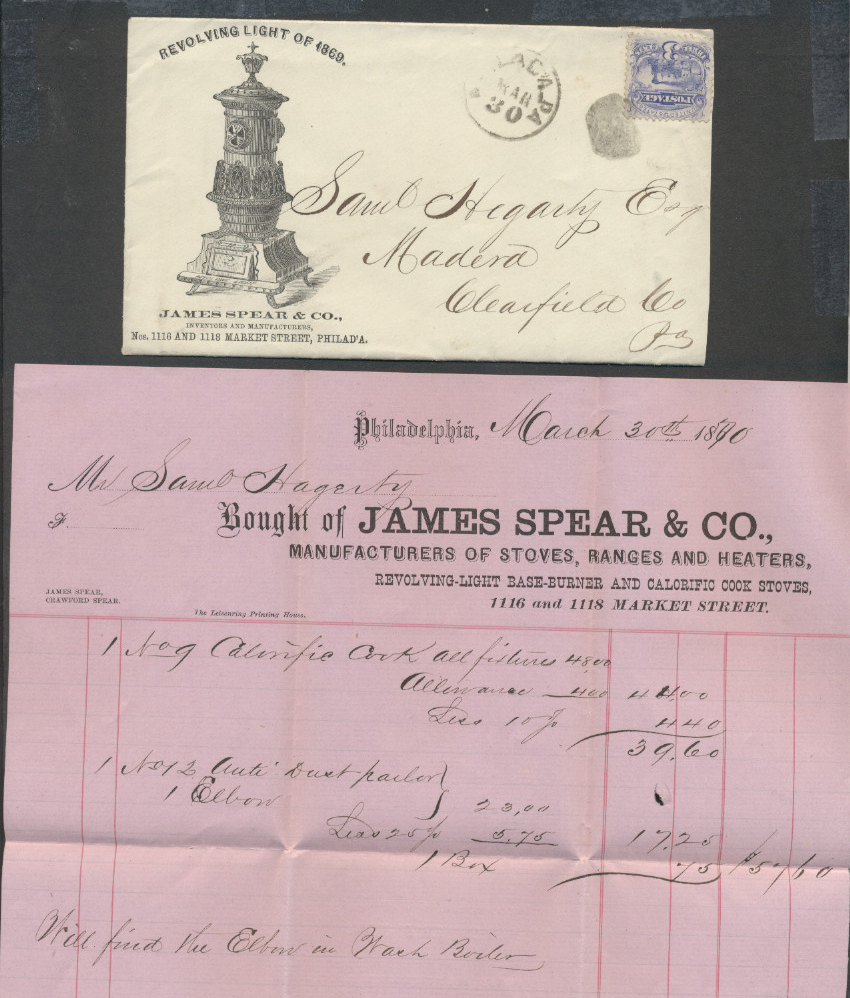 REVOLVING LIGHT OF 1869.
MAR
30
PA
POSTAGE
Saml Hegarty Esq
Madera
Clearfield Co
Pa
JAMES SPEAR & CO.,
INVENTORS AND MANUFACTURERS,
Nos. 1116 AND 1118 MARKET STREET, PHILAD'A.
Philadelphia, March 30th 1870
Mr Saml Hagerty
F
Bought of JAMES SPEAR & CO.,
MANUFACTURERS OF STOVES, RANGES AND HEATERS,
REVOLVING-LIGHT BASE-BURNER AND CALORIFIC COOK STOVES,
JAMES SPEAR,
CRAWFORD SPEAR.
1116 and 1118 MARKET STREET.
The Leisenring Printing House.
1 No 9 Calorific Cook all fixtures 4800
Allowance 400 44,00
Less 10% 440
39.60
1 No 12 Anti Dust parlor }
1 Elbow } 23,00
Less 25% 5.75 17.25
1 Box 75 $57 60
Will find the Elbow in Wash Boiler